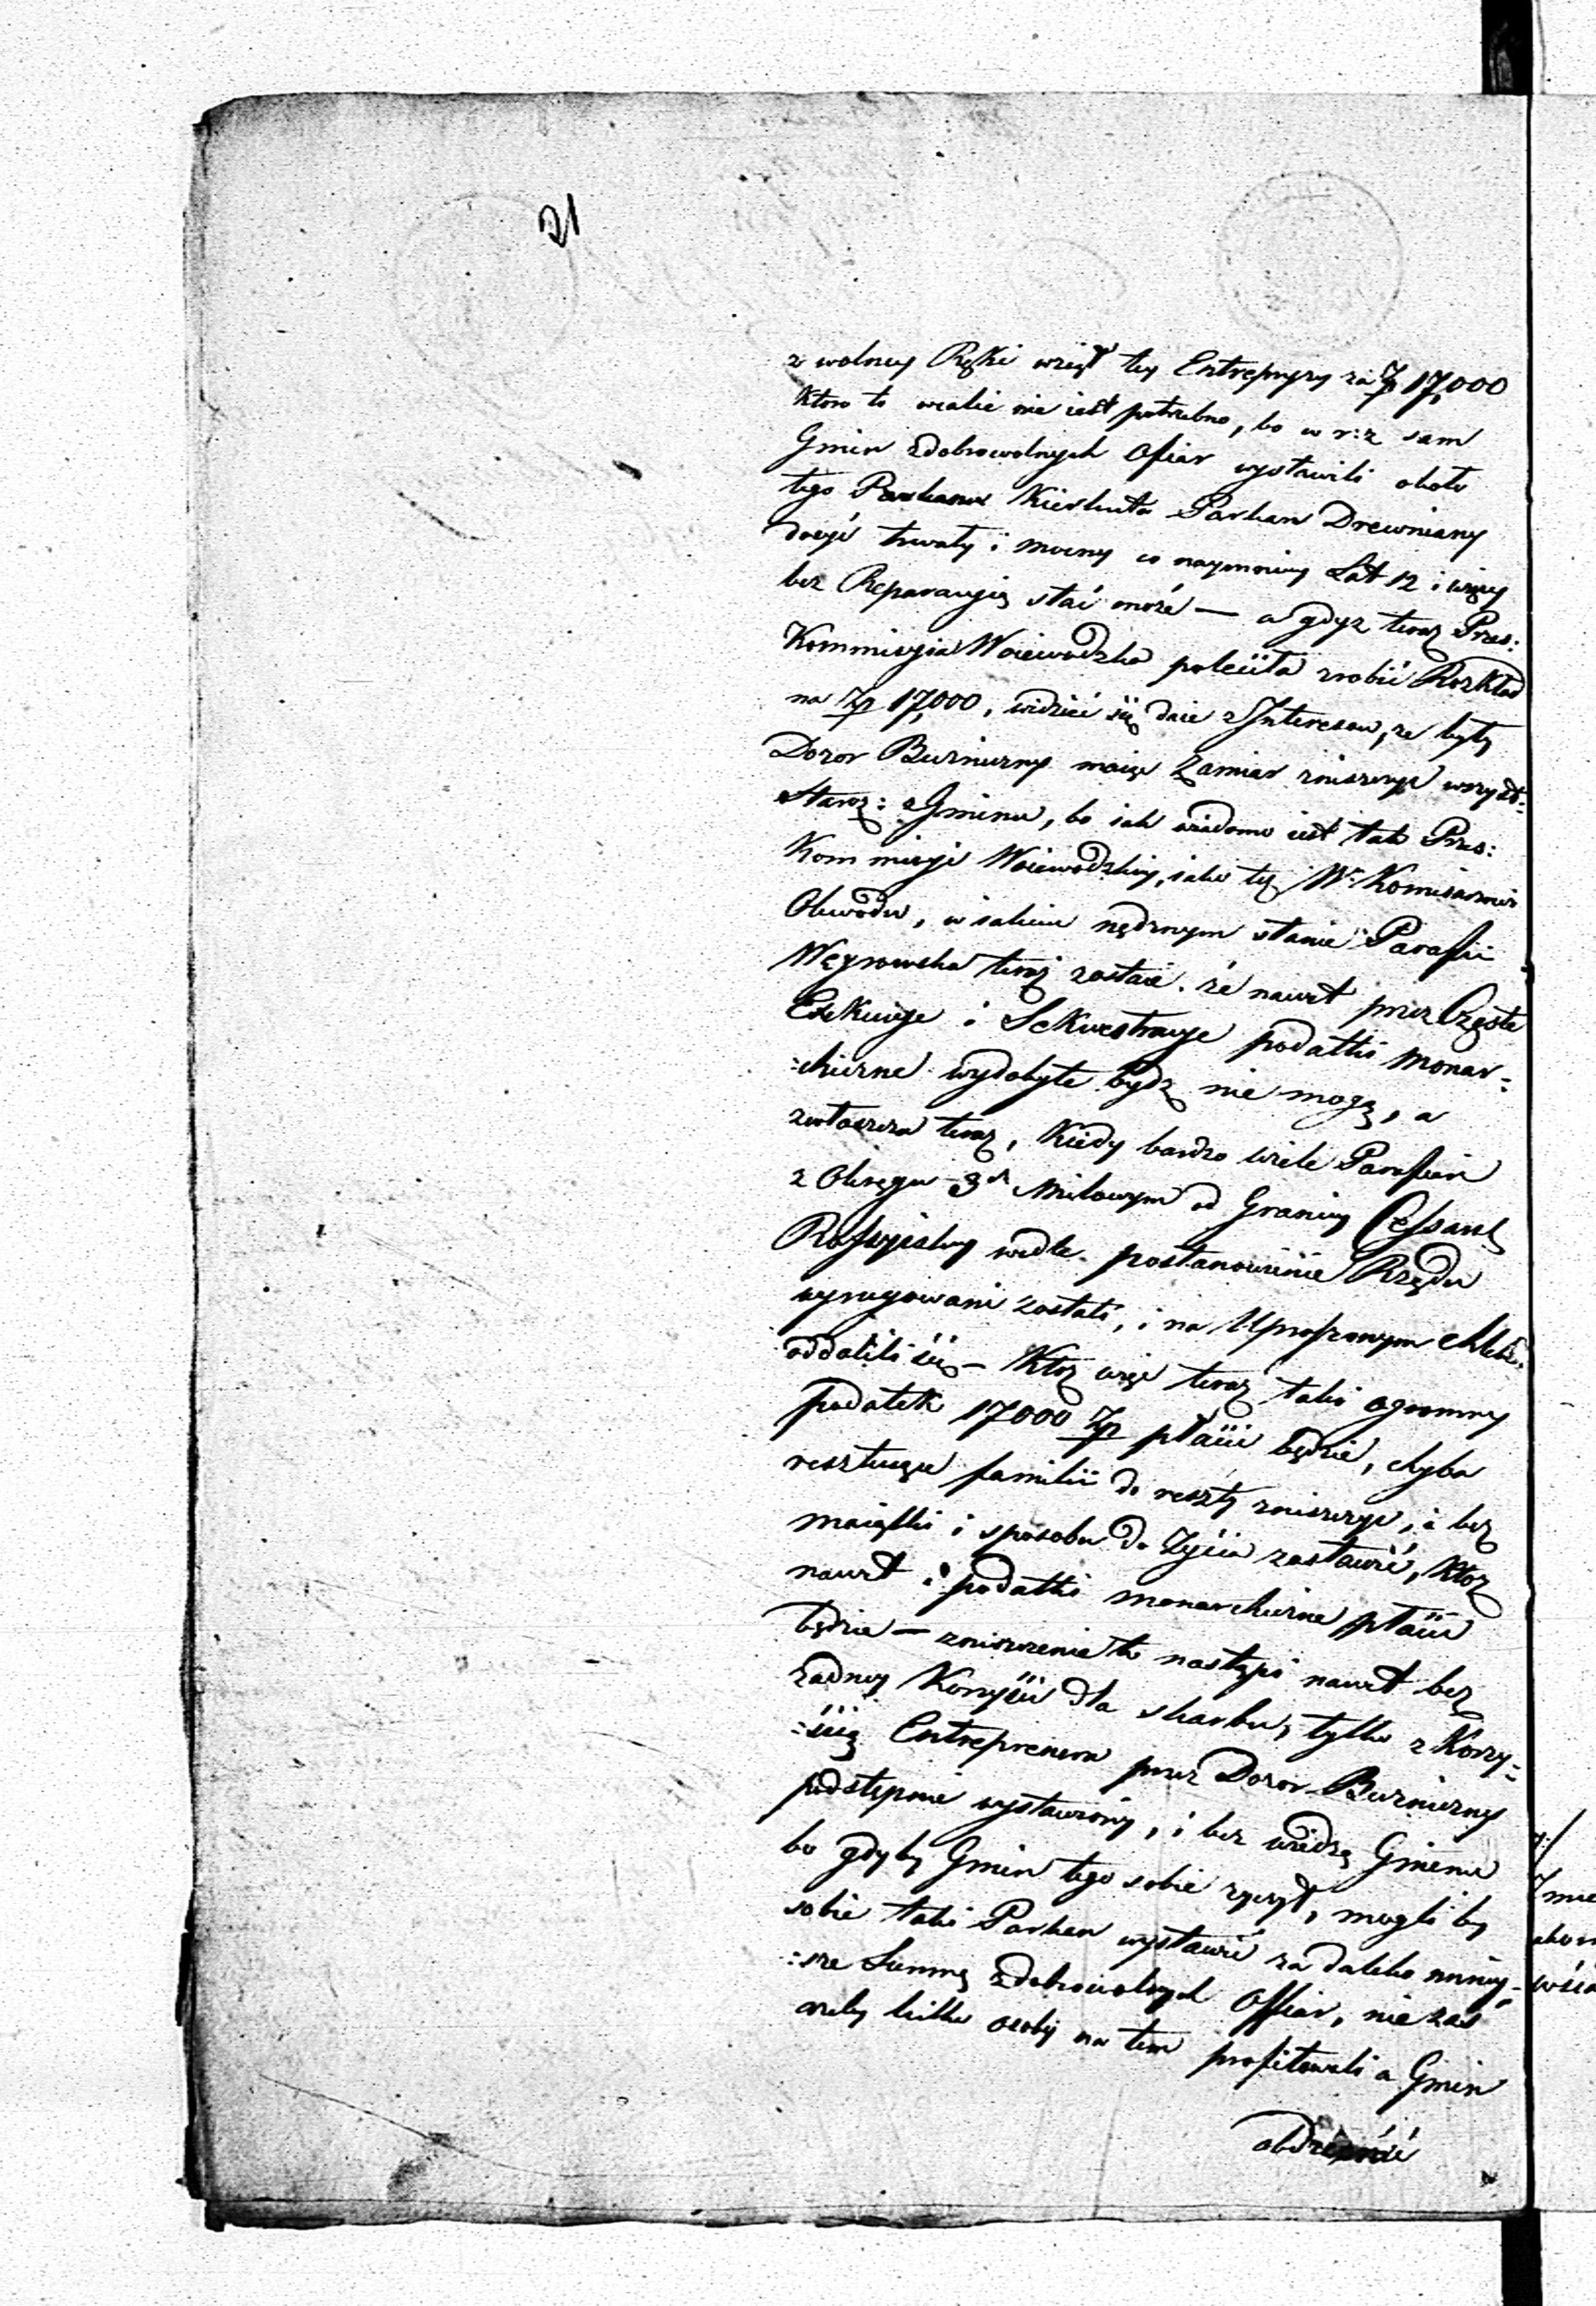 21
z wolney Ręki wziął tey Entrepryzy za Zp 17,000
ktora to wcale nie iest potrzebna, bo w r:z sam
Gmin zdobrowolnych Ofiar wystawili około
tego Parkanu Kierkuta Parkan Drewniany
dosyć trwały i mocny co naymniey Lat 12 i więcy
bez Reparacyią stać może — a gdyz teraz Prze:
Kommissyia Woiewodzka poleciła zrobić Rozkład
na Zp 17,000, widzieć się daie z Interesow, ze były
Dozor Buzniczny maią Zamiar zniszczyć wszyst:
Staroz: z Gminu, bo iak wiadomo iest tak Prze:
Kommissyi Woiewodzkiey, iako tez W: Komisarzowi
Obwodu, w iakim nędznym stanie Parafii
Węgrowska teraz zostaie. że nawet przez Częste
Exekucye i Sekwestracye podatki monar=
:chiczne wydobyte bydz nie mogą, a
zwłaszcza teraz, kiedy bardzo wiele Parafian
z Okręgu 3ch Milowym od Granicy Cesars
Rossyiskiey wedle postanowienie Rządu
wyrugowani zostali, i na Uproszonym chlebie
oddalili się — Ktoz więc teraz taki ogromny
podatek 17000 Zp płacić będzie, chyba
resztuiące familii do reszty zniszczyć, i bez
maiątki i sposobu do Zycia zostawić, Ktoz
nawet i podatki monarchiczne płacić
będzie — zniszczenie to nastąpi nawet bez
zadney Korzyści dla skarbu, tylko z Korzy=
:ścią Entreprenera przez Dozor Buzniczny
podstępnie wystawiony, i bez wiedzą Gminu
bo gdyby Gmin tego sobie zyczył, mogli by
sobie taki Parkan wystawić za daleko mniey=
:sze Summę zdobrowolnych Offiar, nie zaś
zeby kilku osoby na tem profitowali a Gmin